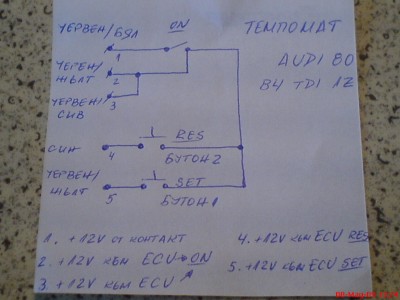 ЧЕРВЕН/БЯЛ
ON
ТЕМПОМАТ
1
AUDI 80
ЧЕРЕН/
ЖЪЛТ
2
B4 TDI 1Z
ЧЕРВЕН/
СИВ
3
RES
СИН
4
БУТОН 2
ЧЕРВЕН/
ЖЪЛТ
SET
5
БУТОН 1
1. +12V ОТ КОНТАКТ
2. +12V КЪМ ECU → ON
3. +12V КЪМ ECU
4. +12V КЪМ ECU RES
5. +12V КЪМ ECU SET